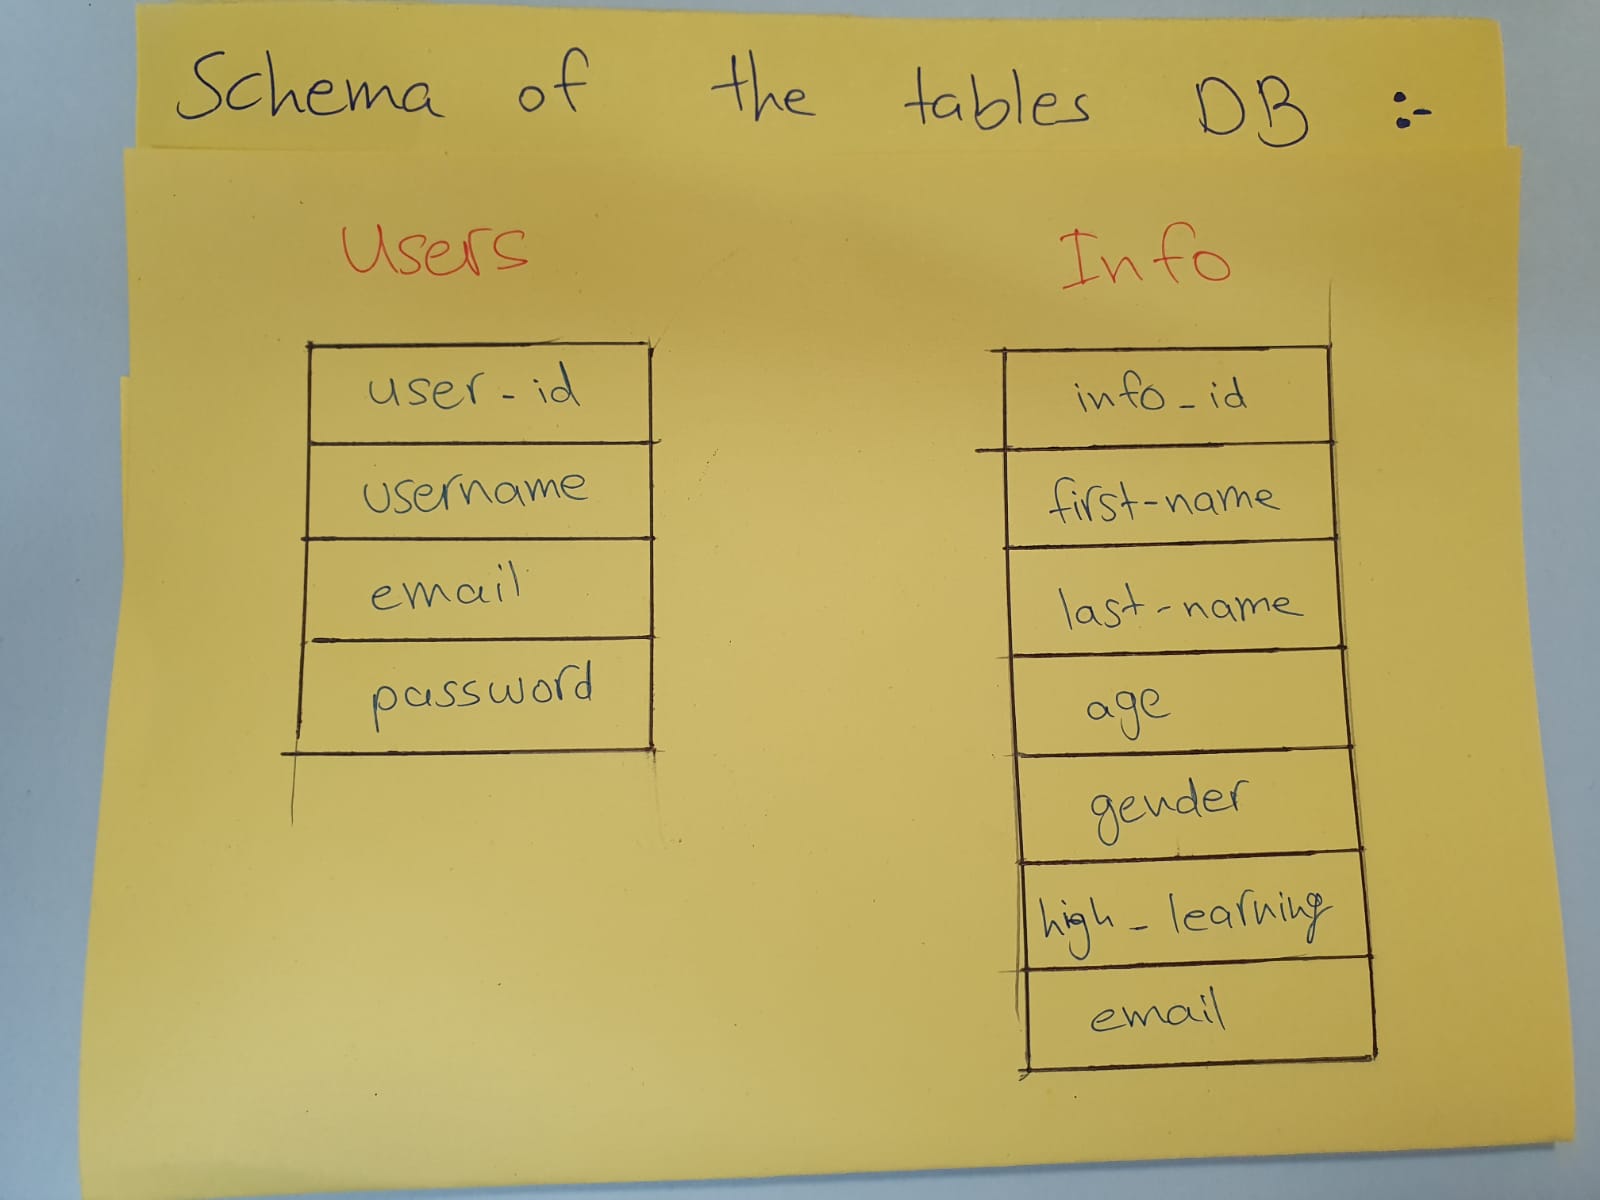 Schema of the tables DB :-
Users
user-id
username
email
password
Info
info_id
first-name
last-name
age
gender
high_learning
email